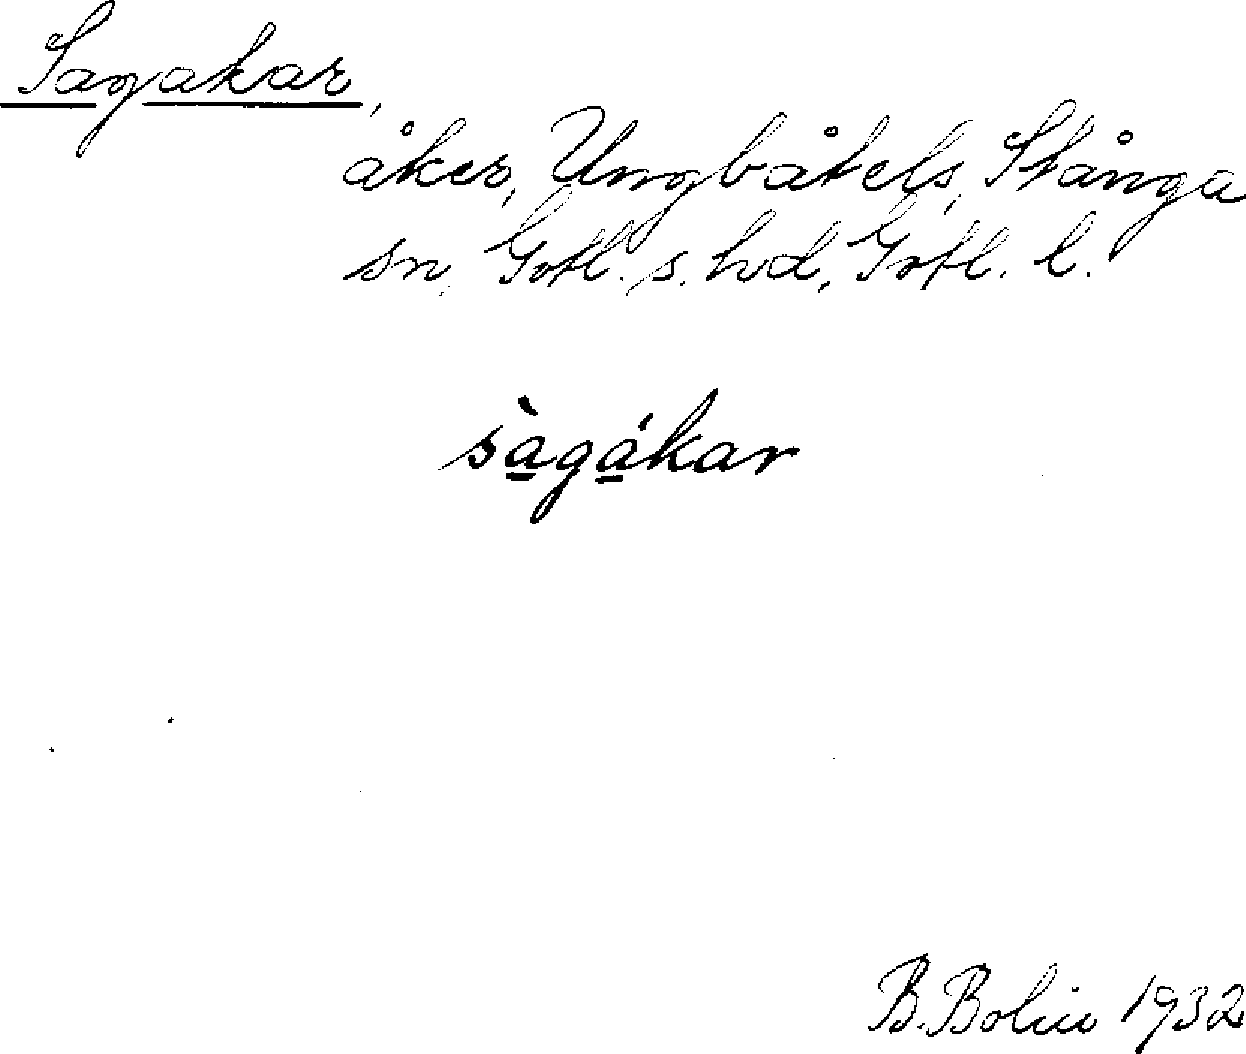 Sagakar,
åker, Ungbåtels, Stånga
sn, Gotl. s. hd, Gotl. l.
sàgákar
B. Bolin 1932